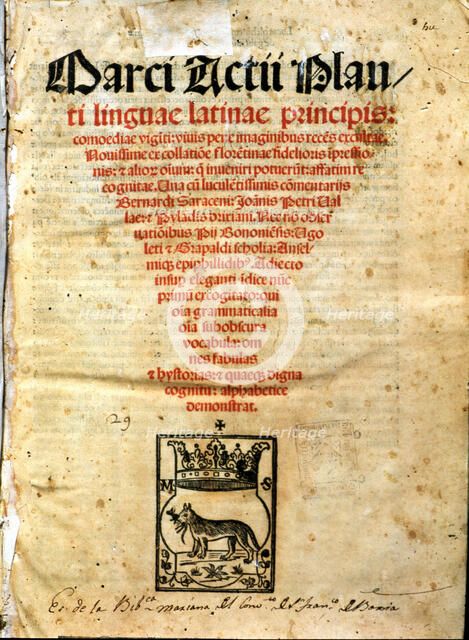 Marci Actii Plau/
ti linguae latinae principis:
comoediae vigĩti: viuis pene imaginibus recẽs excultae.
Nouissime ex collatiõe florẽtinae fidelioris ĩpressio-
nis: & alior̃ oĩum: q̃ inueniri potuerũt: affatim re
cognitae. Una cũ luculẽtissimis cõmentarijs
Bernardi Saraceni: Joãnis Petri Val
lae: & Pyladis brixiani. Nec nõ obser
uatiõibus Pij Bononiẽsis: Ugo
leti & Grapaldi scholia: Ansel-
miq; epiphillidib9. Adiecto
insup eleganti ĩdice nũc
primũ excogitato: qui
oĩa grammaticalia
oĩa subobscura
vocabula: om
nes fabulas
& hystorias: & quaeq; digna
cognitu: alphabetice
demonstrat.
29
M S
Es de la Bib.ca mariana del Conv.to de S.n Fran.co de Baxia
Heritage
Heritage
Heritage
Heritage